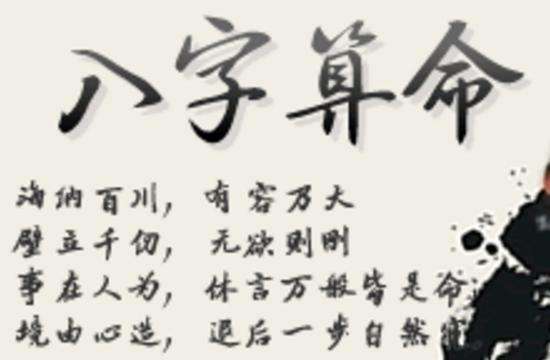 八字算命
海纳百川，有容乃大
壁立千仞，无欲则刚
事在人为，休言万般皆是命
境由心造，退后一步自然